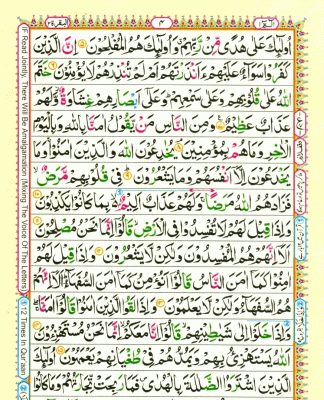 البقرة ٢
٣
الٓمّٓ ١
اُولٰٓئِكَ عَلٰى هُدًى مِّنْ رَّبِّهِمْ وَاُولٰٓئِكَ هُمُ الْمُفْلِحُوْنَ ۝ اِنَّ الَّذِيْنَ
كَفَرُوْا سَوَآءٌ عَلَيْهِمْ ءَاَنْذَرْتَهُمْ اَمْ لَمْ تُنْذِرْهُمْ لَا يُؤْمِنُوْنَ ۝ خَتَمَ
اللّٰهُ عَلٰى قُلُوْبِهِمْ وَعَلٰى سَمْعِهِمْ وَعَلٰٓى اَبْصَارِهِمْ غِشَاوَةٌ وَّلَهُمْ
عَذَابٌ عَظِيْمٌ ۝ وَمِنَ النَّاسِ مَنْ يَّقُوْلُ اٰمَنَّا بِاللّٰهِ وَبِالْيَوْمِ
الْاٰخِرِ وَمَا هُمْ بِمُؤْمِنِيْنَ ۝ يُخٰدِعُوْنَ اللّٰهَ وَالَّذِيْنَ اٰمَنُوْا وَمَا
يَخْدَعُوْنَ اِلَّآ اَنْفُسَهُمْ وَمَا يَشْعُرُوْنَ ۝ فِيْ قُلُوْبِهِمْ مَّرَضٌ
فَزَادَهُمُ اللّٰهُ مَرَضًا وَلَهُمْ عَذَابٌ اَلِيْمٌ بِمَا كَانُوْا يَكْذِبُوْنَ ۝
وَاِذَا قِيْلَ لَهُمْ لَا تُفْسِدُوْا فِى الْاَرْضِ قَالُوْٓا اِنَّمَا نَحْنُ مُصْلِحُوْنَ ۝
اَلَآ اِنَّهُمْ هُمُ الْمُفْسِدُوْنَ وَلٰكِنْ لَّا يَشْعُرُوْنَ ۝ وَاِذَا قِيْلَ لَهُمْ
اٰمِنُوْا كَمَآ اٰمَنَ النَّاسُ قَالُوْٓا اَنُؤْمِنُ كَمَآ اٰمَنَ السُّفَهَآءُ اَلَآ اِنَّهُمْ
هُمُ السُّفَهَآءُ وَلٰكِنْ لَّا يَعْلَمُوْنَ ۝ وَاِذَا لَقُوا الَّذِيْنَ اٰمَنُوْا قَالُوْٓا اٰمَنَّا
وَاِذَا خَلَوْا اِلٰى شَيٰطِيْنِهِمْ قَالُوْٓا اِنَّا مَعَكُمْ اِنَّمَا نَحْنُ مُسْتَهْزِءُوْنَ ۝
اَللّٰهُ يَسْتَهْزِئُ بِهِمْ وَيَمُدُّهُمْ فِيْ طُغْيَانِهِمْ يَعْمَهُوْنَ ۝ اُولٰٓئِكَ
الَّذِيْنَ اشْتَرَوُا الضَّلٰلَةَ بِالْهُدٰى فَمَا رَبِحَتْ تِّجَارَتُهُمْ وَمَا كَانُوْا
(IF Read Jointly, There Will Be Amalgamation (Mixing The Voice Of The Letters)
12 Times In Qur'aan)